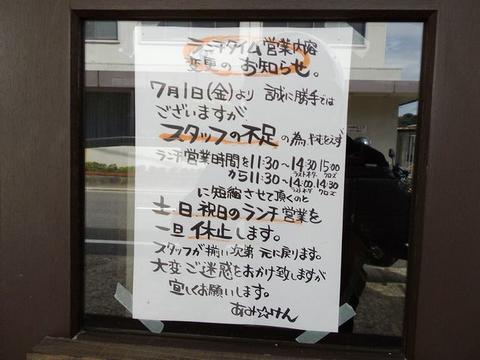 ランチタイム営業内容
変更のお知らせ。
7月1日(金)より 誠に勝手では
ございますが
スタッフの不足の為やむをえず
ランチ営業時間を11:30~14:30 15:00
ラストオーダー クローズ
から11:30~14:00 14:30
ラストオーダー クローズ
に短縮させて頂くのと
土日祝日のランチ営業を
一旦休止します。
スタッフが揃い次第 元に戻ります。
大変ご迷惑をおかけ致しますが
宜しくお願いします。
あみ☆けん